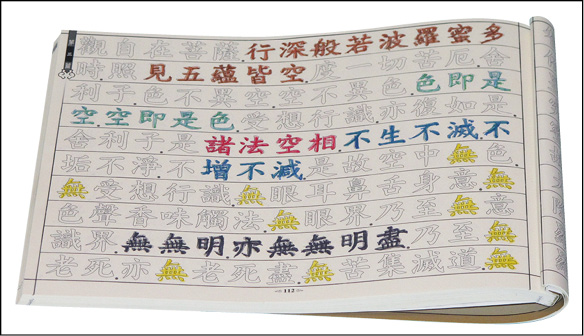 觀自在菩薩行深般若波羅蜜多
時照見五蘊皆空度一切苦厄舍
利子色不異空空不異色色即是
空空即是色受想行識亦復如是
舍利子是諸法空相不生不滅不
垢不淨不增不減是故空中無色
無受想行識無眼耳鼻舌身意無
色聲香味觸法無眼界乃至無意
識界無無明亦無無明盡乃至無
老死亦無老死盡無苦集滅道無
112